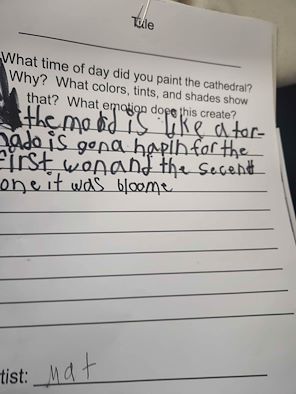 Title
What time of day did you paint the cathedral?
Why? What colors, tints, and shades show
that? What emotion does this create?
the mood is like a tor-
nado is gona hapin for the
first won and the secent
one it was bloome
tist: Mat